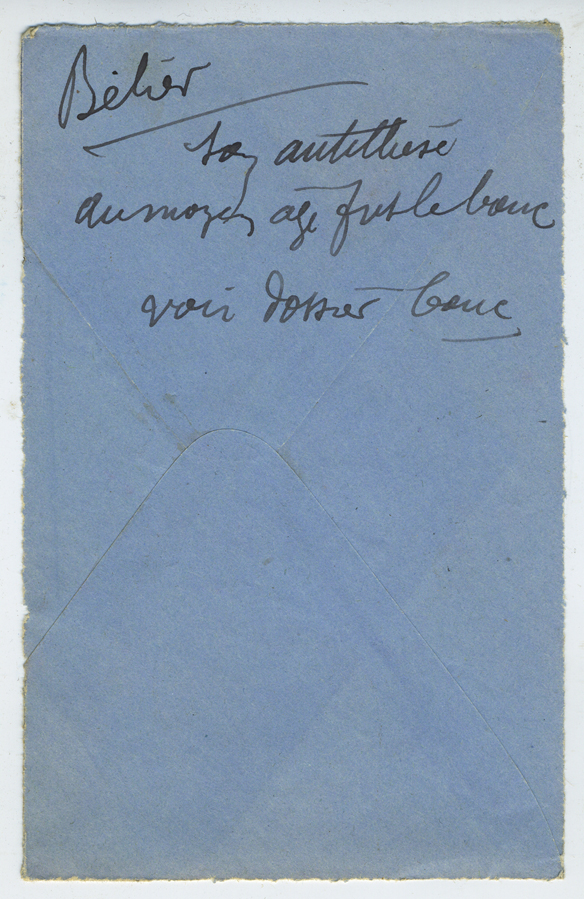 Bélier
son antithèse
au moyen age fut le bouc
voir dossier bouc